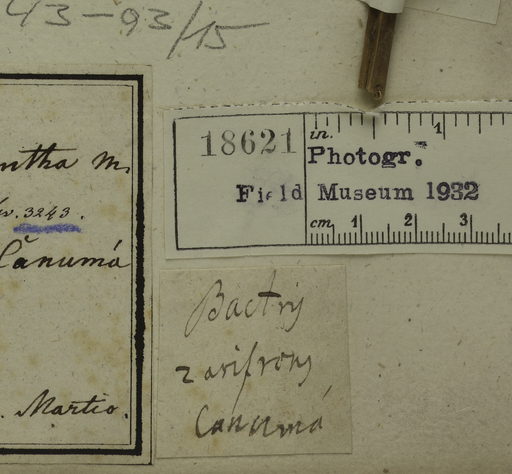 43-93/15
ntha m.
v. 3243.
Canumá
. Martio.
18621
in. 1
Photogr.
Field Museum 1932
cm. 1 2 3
Bactris
Canumá